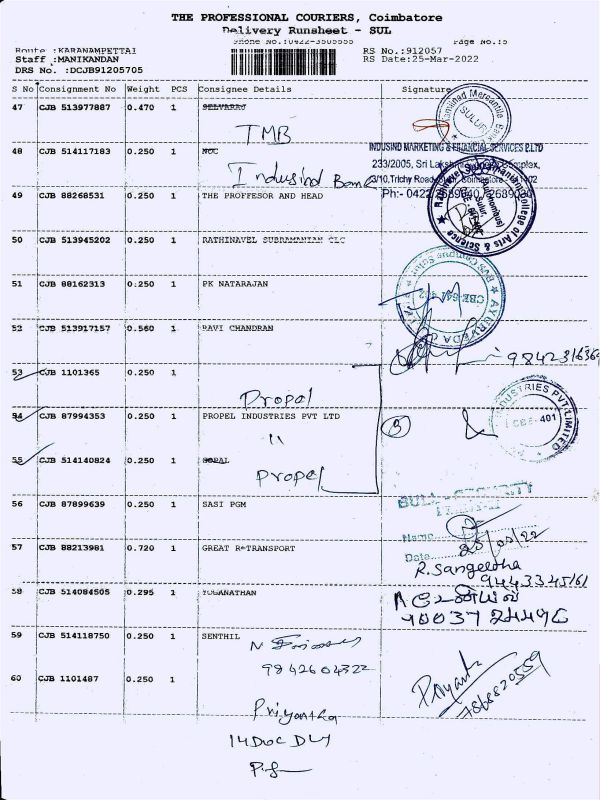 THE PROFESSIONAL COURIERS, Coimbatore
Delivery Runsheet - SUL
Phone No.:0422-3505555 Page No.:5
Route :KARANAMPETTAI RS No.:912057
Staff :MANIKANDAN RS Date:25-Mar-2022
DRS No. :DCJB91205705
S No Consignment No Weight PCS Consignee Details Signature
47 CJB 513977887 0.470 1 SELVARAJ
TMB
48 CJB 514117183 0.250 1 NOC
Indusind Bank
INDUSIND MARKETING & FINANCIAL SERVICES P.LTD
233/2005, Sri Lakshmi Complex,
3/10,Trichy Road
Ph:- 0422 2689040, 2689030
49 CJB 88268531 0.250 1 THE PROFFESOR AND HEAD
Rathnavel Subramaniam College of Arts & Science
(Autonomous)
Sulur,
50 CJB 513945202 0.250 1 RATHINAVEL SUBRAMANIAN CLG
RVS Campus Sulur
51 CJB 88162313 0.250 1 PK NATARAJAN
CBE-641 402
AYURVEDA
52 CJB 513917157 0.560 1 RAVI CHANDRAN
9842316364
53 CJB 1101365 0.250 1
Propel
54 CJB 87994353 0.250 1 PROPEL INDUSTRIES PVT LTD
"
INDUSTRIES PVT LIMITED
CBE-401
55 CJB 514140824 0.250 1 GOPAL
Propel
3
56 CJB 87899639 0.250 1 SASI PGM
BULL SECURITY
Name
Date 25/03/22
57 CJB 88213981 0.720 1 GREAT R-TRANSPORT
R.Sangeetha
9443345161
58 CJB 514084505 0.295 1 YOGANATHAN
90037 24496
59 CJB 514118750 0.250 1 SENTHIL
9842604322
60 CJB 1101487 0.250 1
Priyanka
7868820559
Priyantha
14 Doc DLY